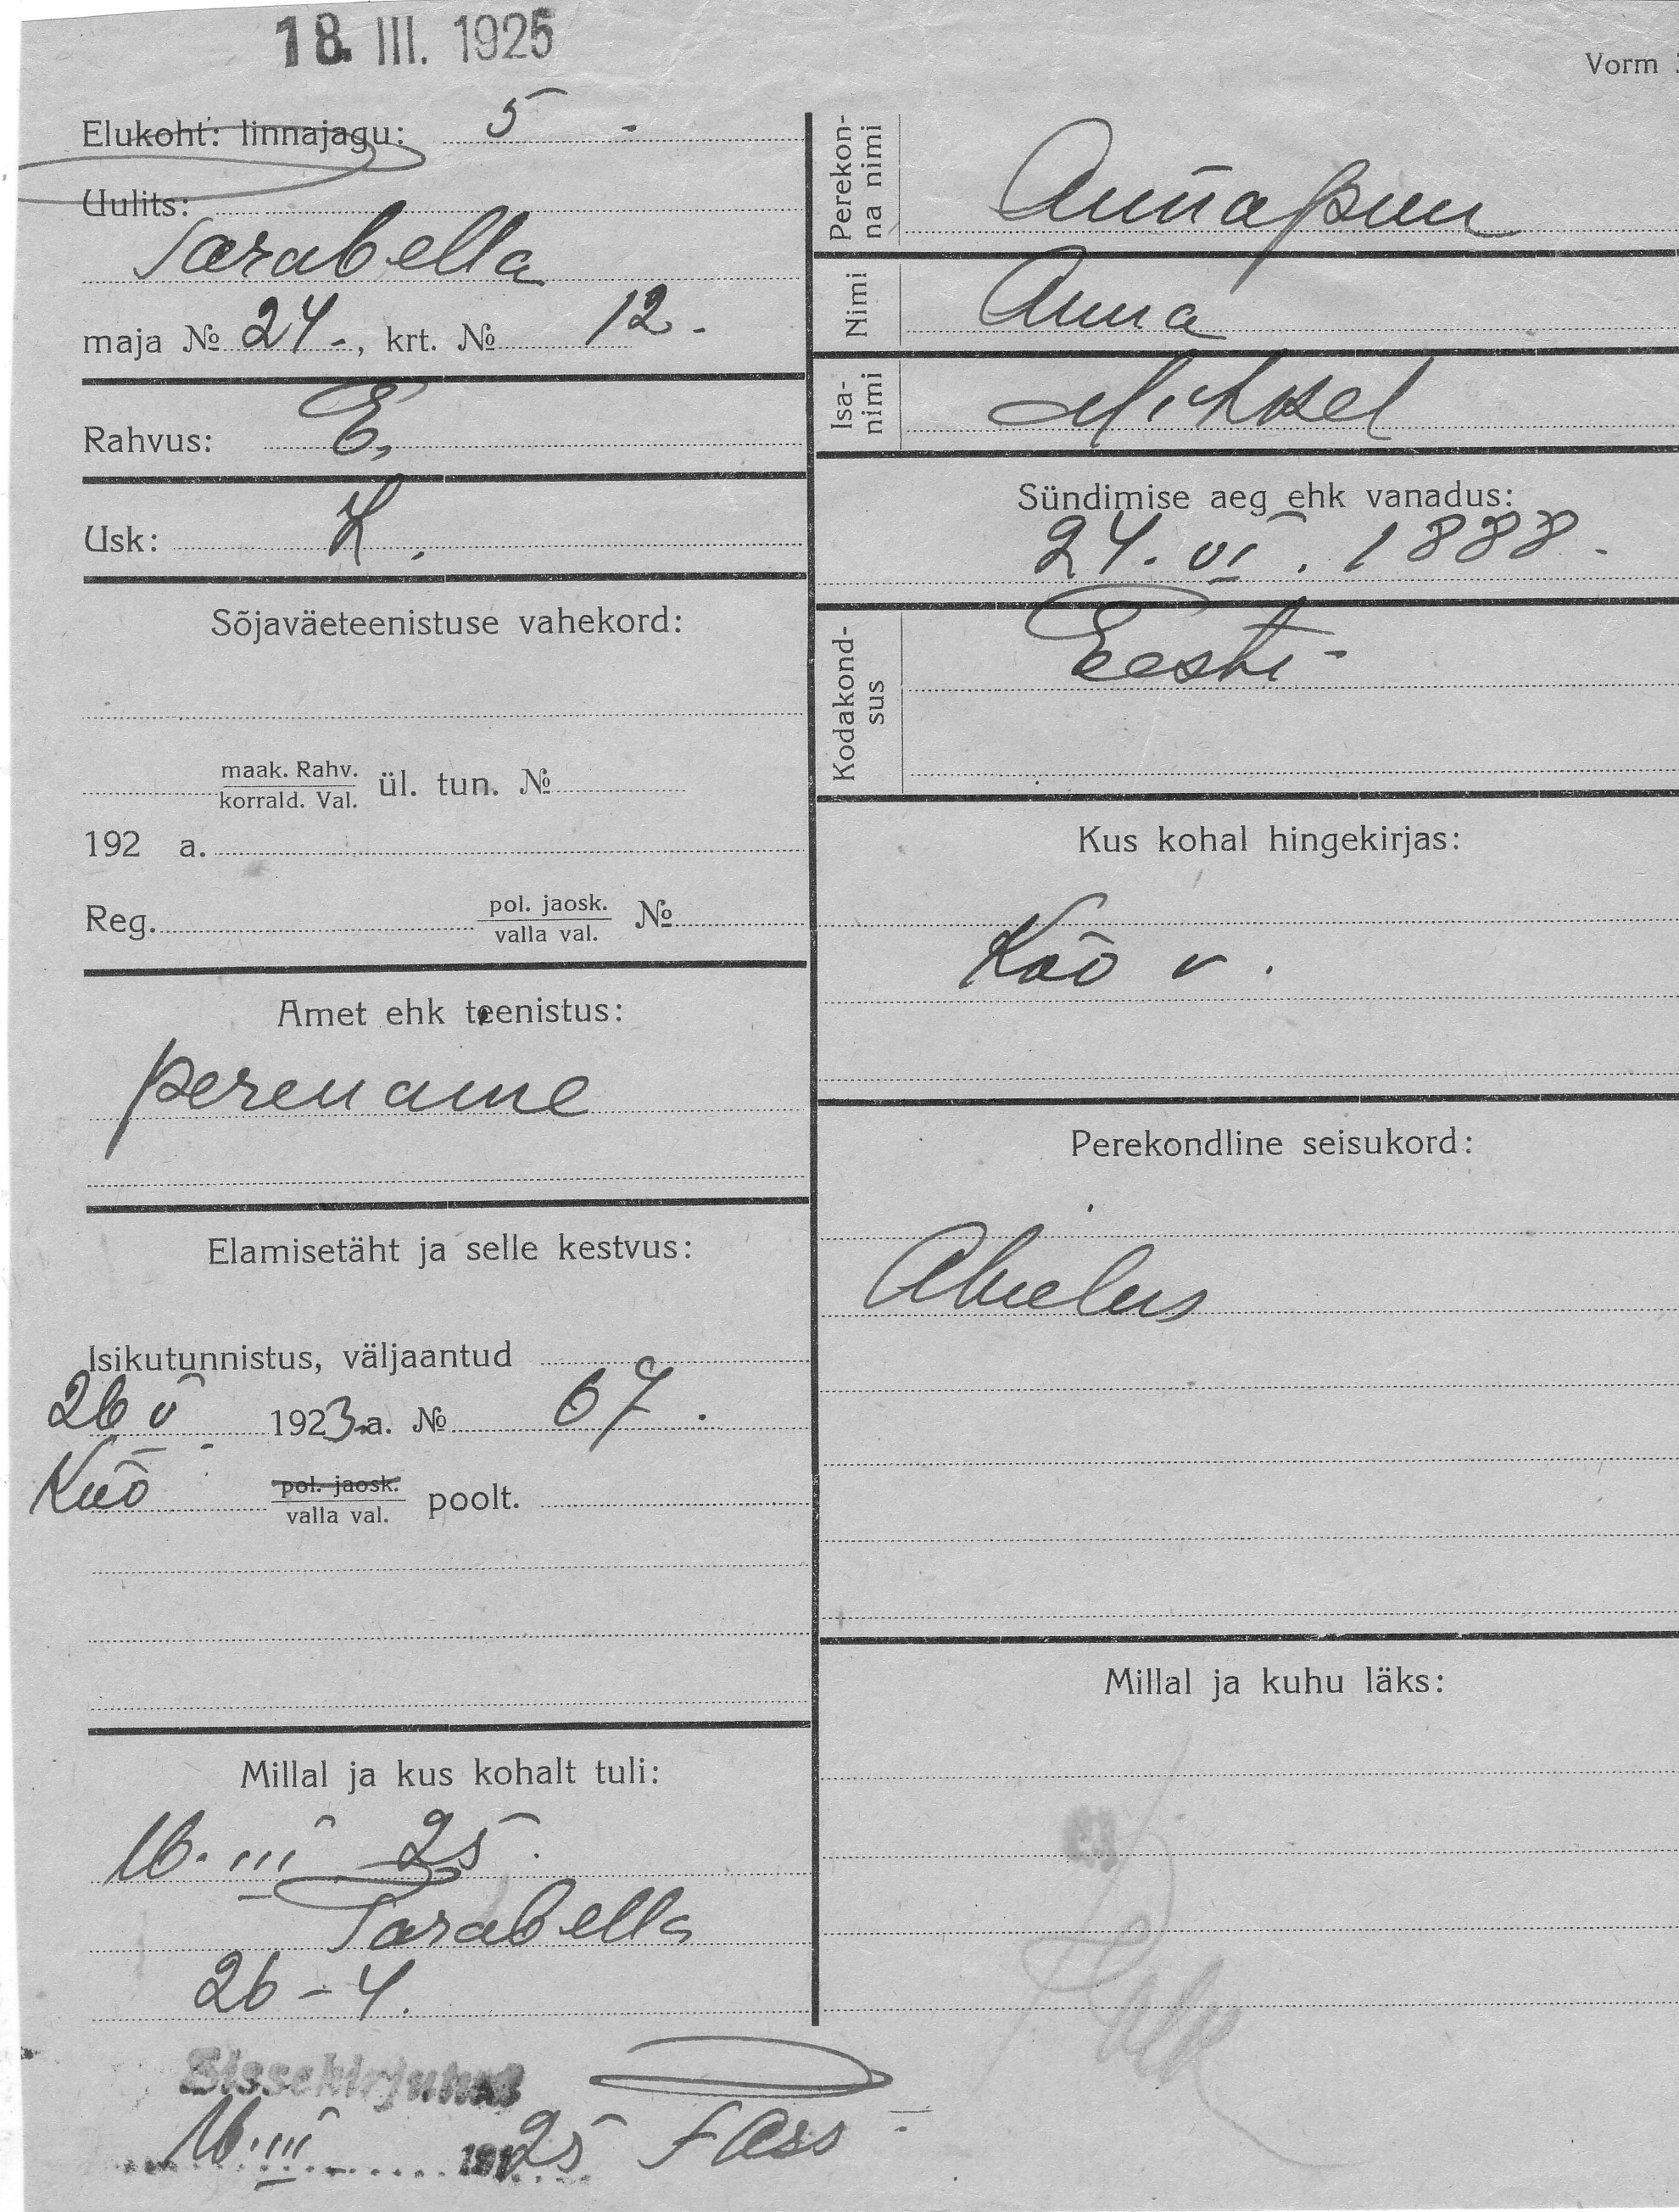 18. III. 1925
Vorm
Elukoht: linnajagu: 5 -
Uulits:
Parabella
maja № 24-, krt. № 12.
Rahvus: E,
Usk: K.
Sõjaväeteenistuse vahekord:
maak. Rahv.
korrald. Val. ül. tun. №
192 a.
Reg. pol. jaosk.
valla val. №
Amet ehk teenistus:
perenaine
Elamisetäht ja selle kestvus:
Isikutunnistus, väljaantud
26 V 1923.a. № 67.
Köo pol. jaosk.
valla val. poolt.
Millal ja kus kohalt tuli:
16. III 25.
Parabella
26-4.
Sissekirjutud
16. III 1925
Perekon-
na nimi
Annapuu
Nimi
Anna
Isa-
nimi
Mihkel
Sündimise aeg ehk vanadus:
24. VI. 1888.
Kodakond-
sus
Eesti-
Kus kohal hingekirjas:
Köo v.
Perekondline seisukord:
Abielus
Millal ja kuhu läks: